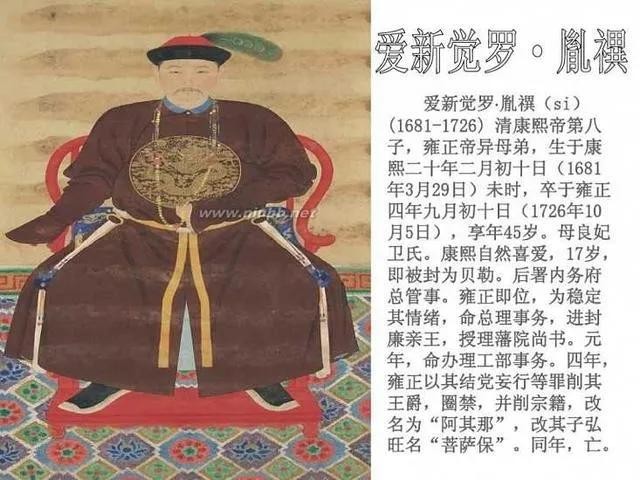 爱新觉罗·胤禩
爱新觉罗·胤禩（si）
（1681-1726）清康熙帝第八
子，雍正帝异母弟，生于康
熙二十年二月初十日（1681
年3月29日）未时，卒于雍正
四年九月初十日（1726年10
月5日），享年45岁。母良妃
卫氏。康熙自然喜爱，17岁，
即被封为贝勒。后署内务府
总管事。雍正即位，为稳定
其情绪，命总理事务，进封
廉亲王，授理藩院尚书。元
年，命办理工部事务。四年，
雍正以其结党妄行等罪削其
王爵，圈禁，并削宗籍，改
名为“阿其那”，改其子弘
旺名“菩萨保”。同年，亡。